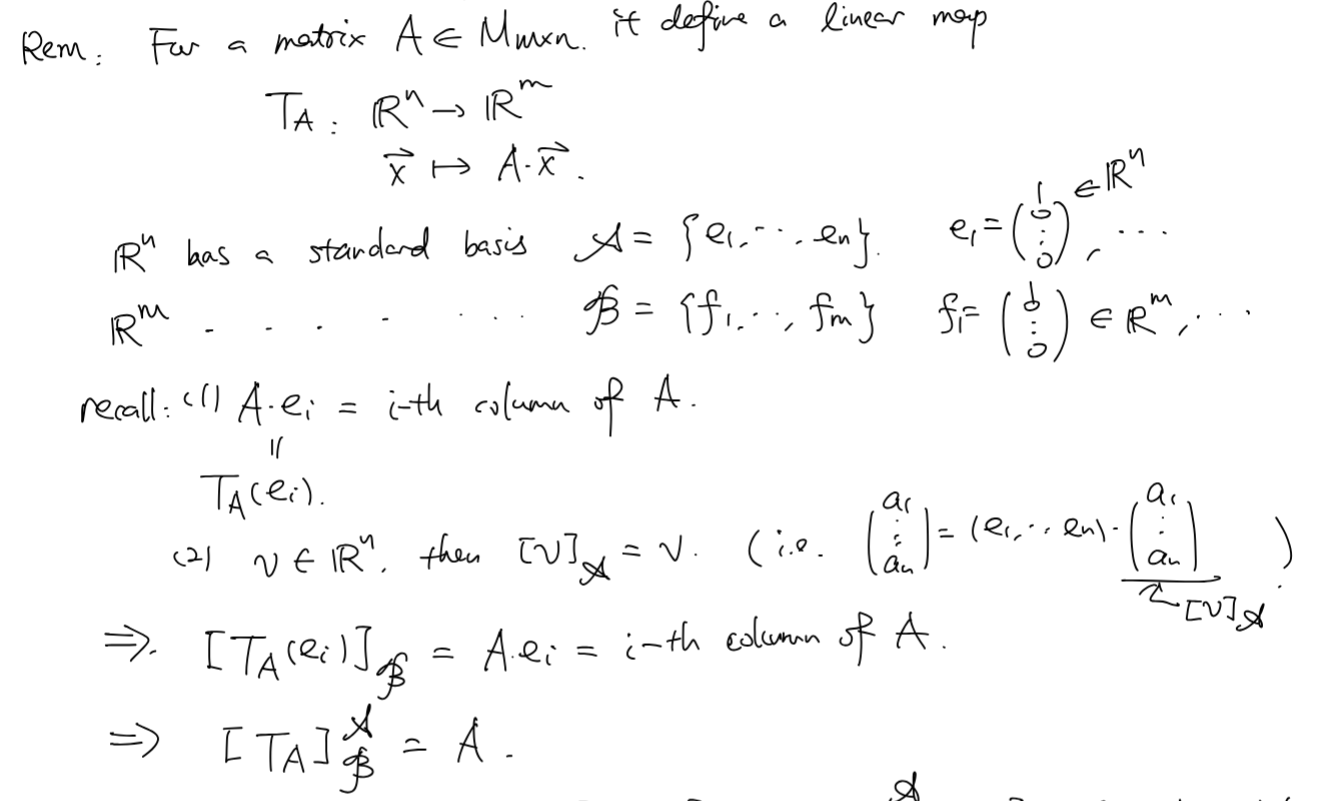 Rem: For a matrix A ∈ Mmxn. it define a linear map
T_A : ℝⁿ → ℝᵐ
x⃗ ↦ A·x⃗.
ℝⁿ has a standard basis 𝒜 = {e₁,···, eₙ}. e₁ = (1 0 ⋮ 0) ∈ ℝⁿ, ···
ℝᵐ · · · · · · · ℬ = {f₁,···, fₘ} f₁ = (1 ⋮ 0) ∈ ℝᵐ, ···
recall: (1) A·eᵢ = i-th column of A.
||
T_A(eᵢ).
(2) v ∈ ℝⁿ, then [v]_𝒜 = v. (i.e. (a₁ ⋮ aₙ) = (e₁,·· eₙ)·(a₁ ⋮ aₙ) )
[v]_𝒜
⇒. [T_A(eᵢ)]_ℬ = A·eᵢ = i-th column of A.
⇒ [T_A]^𝒜_ℬ = A.